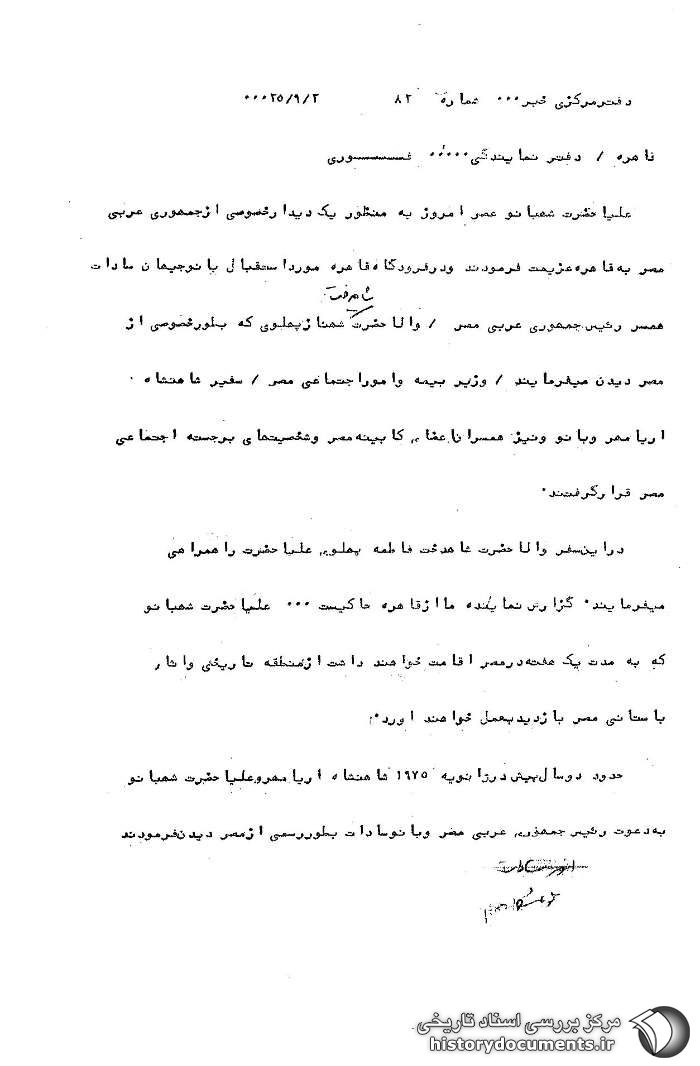 دفترمرکزی خبر۰۰۰ شماره ۸۲ ۲۵/۹/۲۰۰۰
قاهره / دفتر نمایندگی۰۰۰۰۰ فــــــوری
علیا حضرت شهبا نو عصر ا مروز به منظور یک دیدا رخصوصی ا زجمهوری عربی
مصر به قا هره عزیمت فرمودند ودرفرودگاه قا هره موردا ستقبا ل با نوجیها ن سا دا ت
شاهدخت
همسر رئیس جمهوری عربی مصر / وا لا حضرت شهنا ز پهلوی که بطورخصوصی ا ز
مصر دیدن میفرما یند / وزیر بیمه وا مورا جتما عی مصر / سفیر شا هنشاه ۰
ا ریا مهر وبا نو ونیز همسرا ن اعضای کا بینه مصر وشخصیتها ی برجسته ا جتما عی
مصر قرا رگرفتند۰
درا ین سفر وا لا حضرت شا هدخت فا طمه پهلوی علیا حضرت را همرا هی
میفرما یند۰ گزا رش نما ینده ما ا زقا هره حا کیست ۰۰۰ علیا حضرت شهبا نو
که به مدت یک هفته درمصر ا قا مت خوا هند دا شت ا زمنطقه تا ریخی وا ثا ر
با ستا نی مصر با زدیدبعمل خوا هند ا ورد۰
حدود دوسا ل پیش درژا نویه ۱۹۷۵ شا هنشاه ا ریا مهروعلیا حضرت شهبا نو
به دعوت رئیس جمهوری عربی مصر وبا نوسا دا ت بطوررسمی ا زمصر دیدن فرمودند
مرکز بررسی اسناد تاریخی
historydocuments.ir